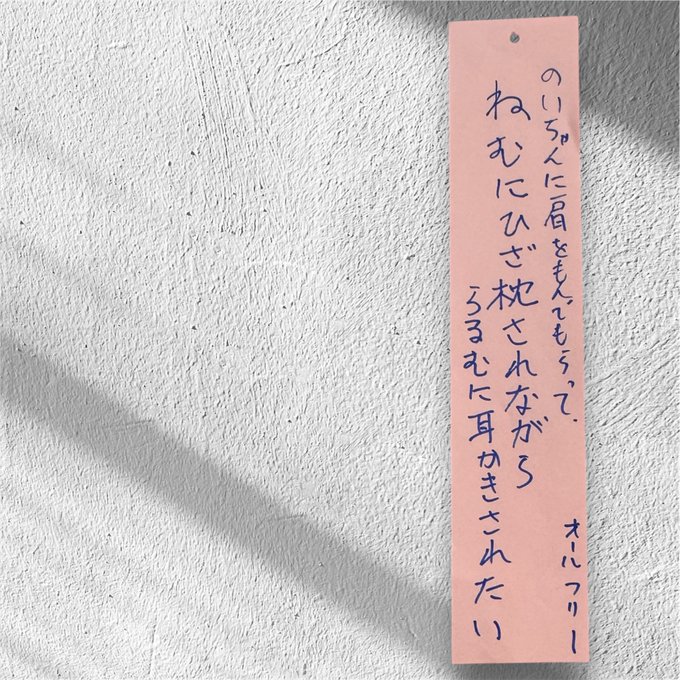 のいちゃんに肩をもんでもらって、
ねむにひざ枕されながら
うるむに耳かきされたい
オールフリー